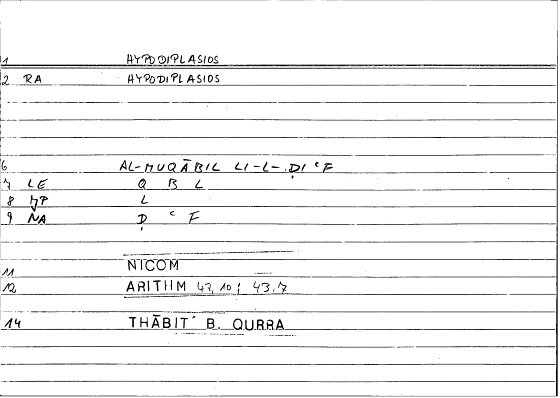 1 HYPODIPLASIOS
2 RA HYPODIPLASIOS
6 AL-MUQĀBIL LI-L-ḌIʿF
7 LE Q B L
8 L
9 NA Ḍ ʿ F
11 NICOM
12 ARITHM 47, 10; 43.7
14 THĀBIT B. QURRA